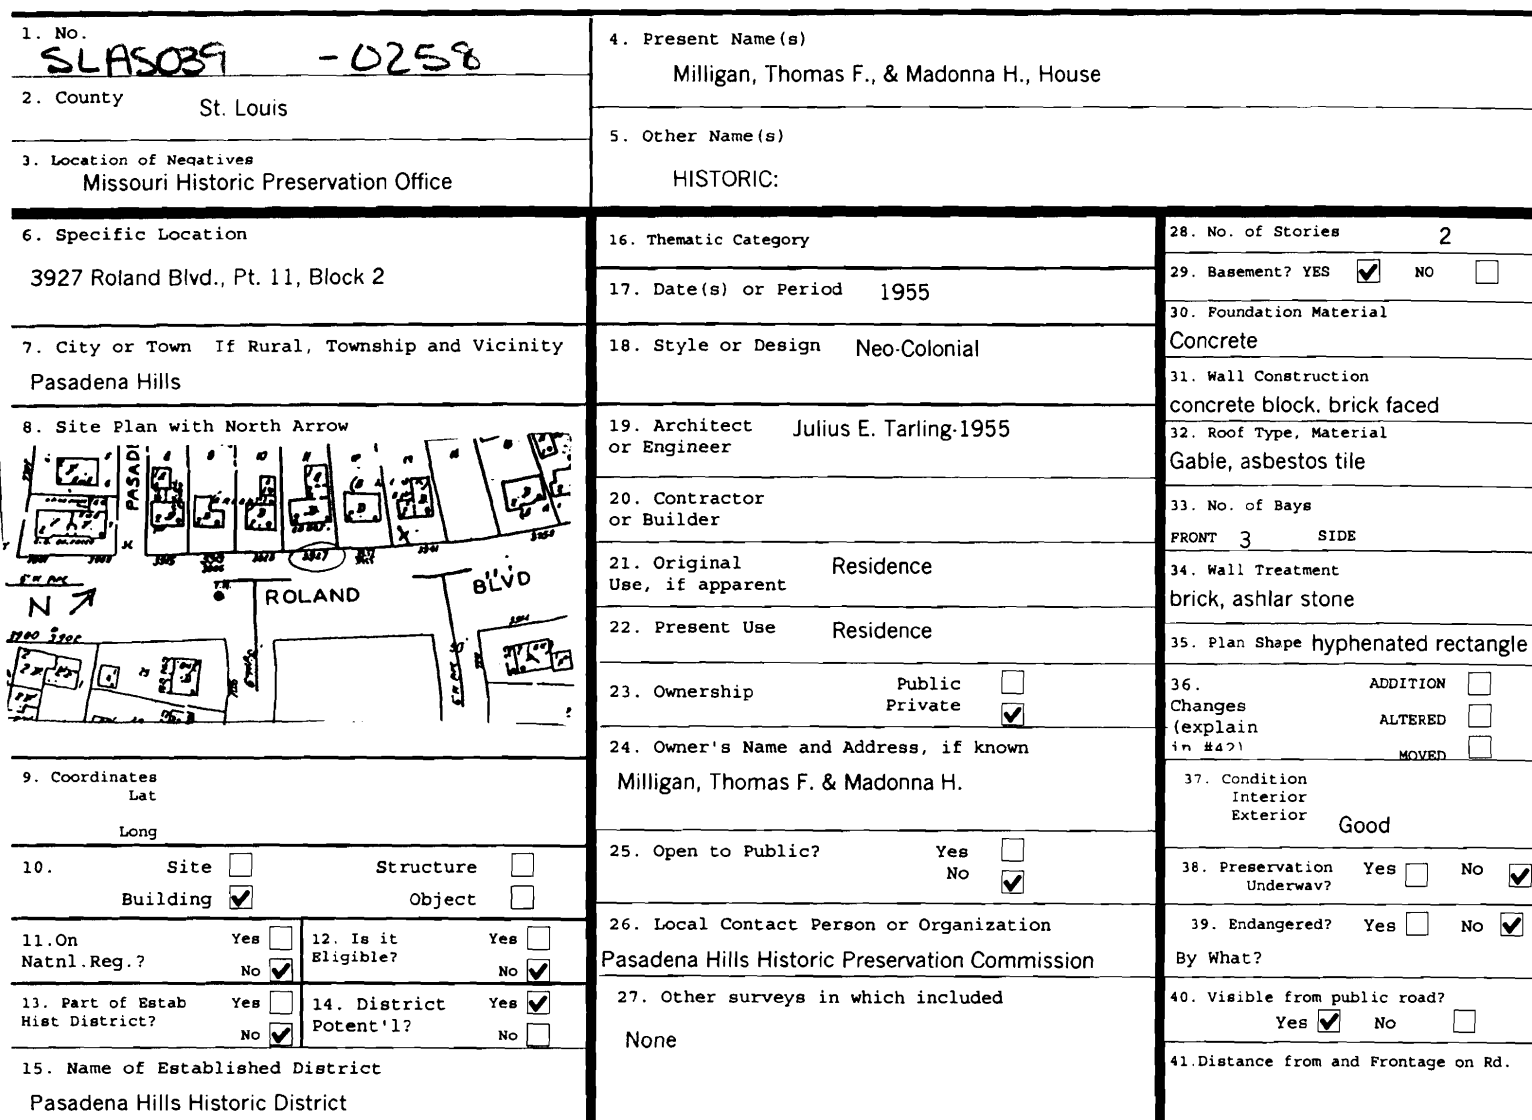 1. No.
SLAS039 -0258
2. County St. Louis
3. Location of Negatives
Missouri Historic Preservation Office
4. Present Name(s)
Milligan, Thomas F., & Madonna H., House
5. Other Name(s)
HISTORIC:
6. Specific Location
3927 Roland Blvd., Pt. 11, Block 2
7. City or Town If Rural, Township and Vicinity
Pasadena Hills
8. Site Plan with North Arrow
PASADE
3927
ROLAND BLVD
N
9. Coordinates
Lat
Long
10. Site Structure
Building ✔ Object
11.On Natnl.Reg.? Yes No ✔
12. Is it Eligible? Yes No ✔
13. Part of Estab Hist District? Yes No ✔
14. District Potent'l? Yes ✔ No
15. Name of Established District
Pasadena Hills Historic District
16. Thematic Category
17. Date(s) or Period 1955
18. Style or Design Neo-Colonial
19. Architect Julius E. Tarling-1955
or Engineer
20. Contractor
or Builder
21. Original Residence
Use, if apparent
22. Present Use Residence
23. Ownership Public
Private ✔
24. Owner's Name and Address, if known
Milligan, Thomas F. & Madonna H.
25. Open to Public? Yes
No ✔
26. Local Contact Person or Organization
Pasadena Hills Historic Preservation Commission
27. Other surveys in which included
None
28. No. of Stories 2
29. Basement? YES ✔ NO
30. Foundation Material
Concrete
31. Wall Construction
concrete block. brick faced
32. Roof Type, Material
Gable, asbestos tile
33. No. of Bays
FRONT 3 SIDE
34. Wall Treatment
brick, ashlar stone
35. Plan Shape hyphenated rectangle
36. ADDITION
Changes
(explain ALTERED
in #42) MOVED
37. Condition
Interior
Exterior Good
38. Preservation Yes No ✔
Underway?
39. Endangered? Yes No ✔
By What?
40. Visible from public road?
Yes ✔ No
41.Distance from and Frontage on Rd.